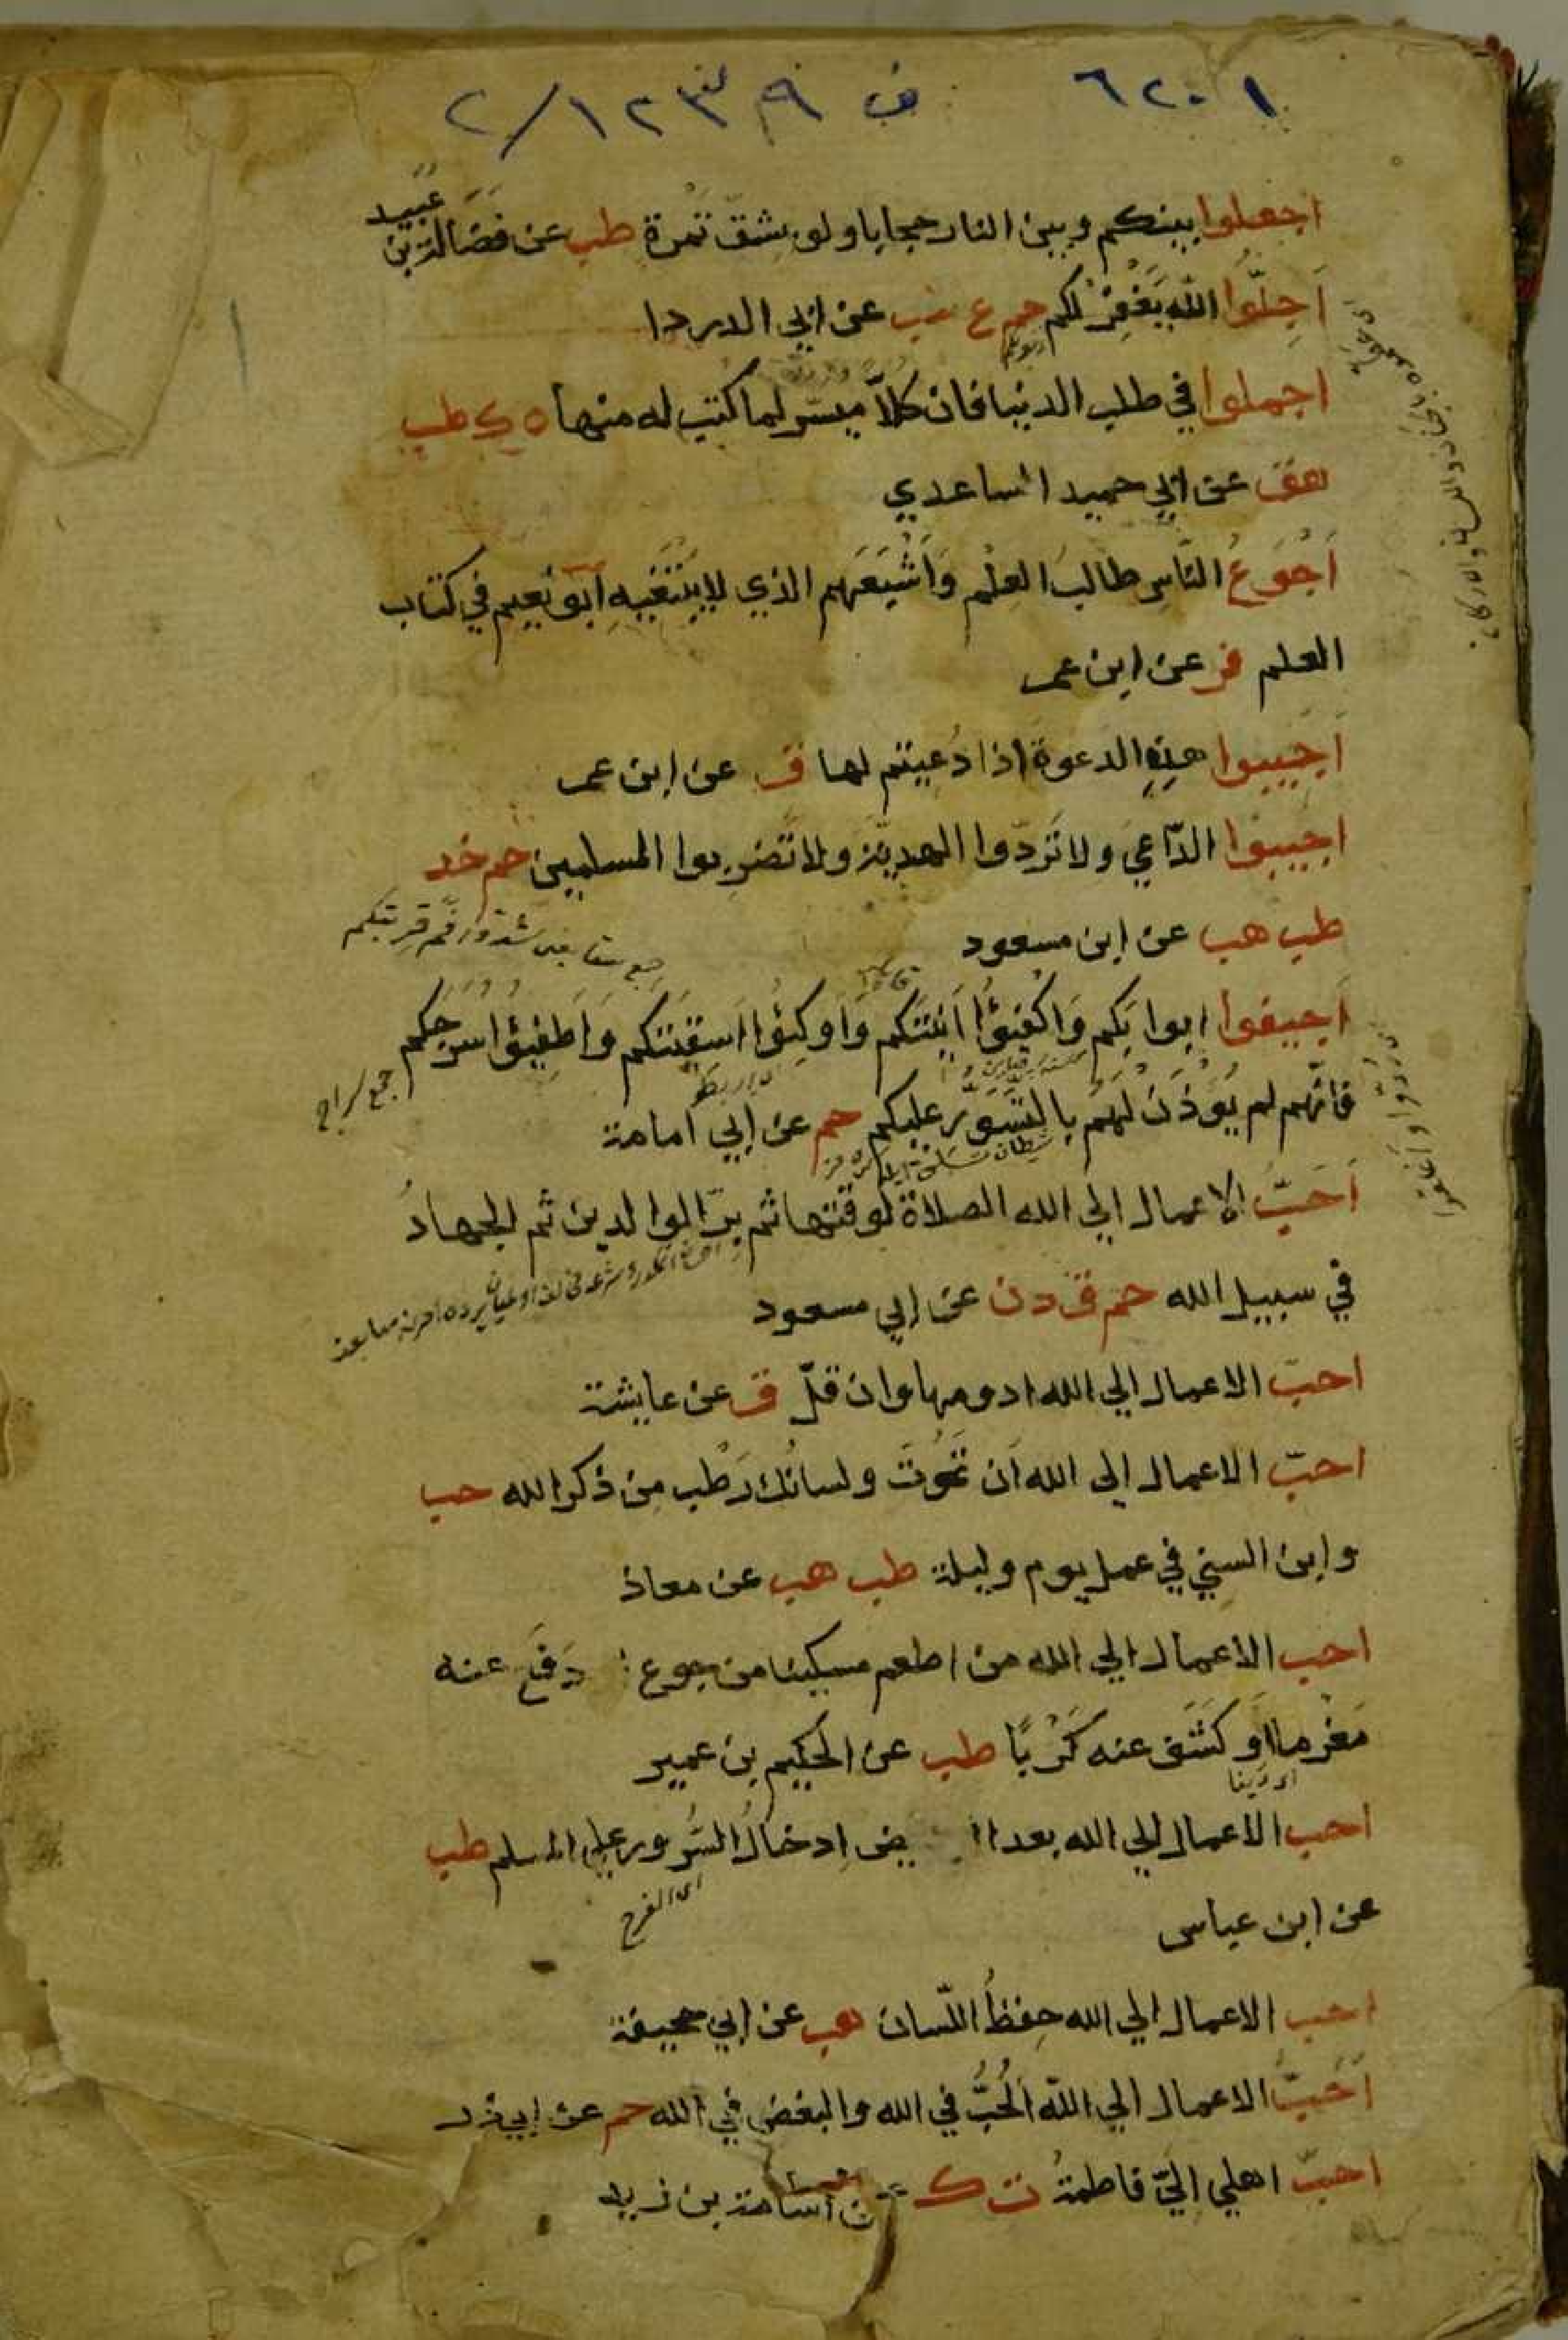 ٦٢٠١ ف ٩ ١٢٣/٢
اجعلوا بينكم وبين النار حجابا ولو بشق تمرة طب عن فضالة بن عبيد
اَجِلّوا اللّه يَغْفِرْ لكم حم ع طب عن ابي الدردا
اجملوا في طلب الدنيا فان كلاّ ميسّر لما كتب له منها ه ك طب
هق عن ابي حميد الساعدي
اَجْوَعُ النّاسِ طالبُ العِلْمِ وَاَشْبَعَهم الذي لا يَبْتَغيهِ ابو نُعيم في كتاب
العلم فر عن ابن عمر
اَجِيبوا هذِهِ الدعوة اذا دُعِيتم لها ق عن ابن عمر
اجيبوا الدّاعيَ ولا تَردّوا الهديّة ولا تَضرِبوا المسلمين حم خد
طب هب عن ابن مسعود
جمع سقا
قربتكم
اَجيفوا ابوابَكم وَاكْفِئُوا آنِيَتَكم وَاَوكِئُوا اَسْقِيَتكم وَاَطفِيئوا سُرُجَكم
جمع سراج
فانّهم لم يُوْذَنْ لهم بالتسَوّر عليكم حم عن ابي امامة
اَحَبُّ الاعمال الي الله الصلاة لوقتها ثم برّ الوالدين ثم الجهادُ
في سبيل الله حم ق د ن عن ابي مسعود
احبّ الاعمال الي الله ادومها وان قلّ ق عن عايشة
احبّ الاعمال الي الله اَن تَمُوتَ ولسانُك رَطْب مِن ذكر الله حب
وابن السني في عمل يوم وليلة طب هب عن معاذ
احب الاعمال الي الله من اطعم مسكينا من جوع دَفَعَ عنه
مَغْرما اَو كَشَفَ عنه كَرْبًا طب عن الحكيم بن عمير
اى دَينا
احب الاعمال الي الله بعد ادخالُ السُّرور علي المسلم طب
اى الفرح
عن ابن عباس
احب الاعمال الي الله حِفظُ اللّسان هب عن ابي جحيفة
اَحَبُّ الاعمال الي اللّه الحُبُّ في الله والبغض في الله حم عن ابي ذر
احبّ اهلي اليّ فاطمةُ ت ك عن اُسامة بن زيد